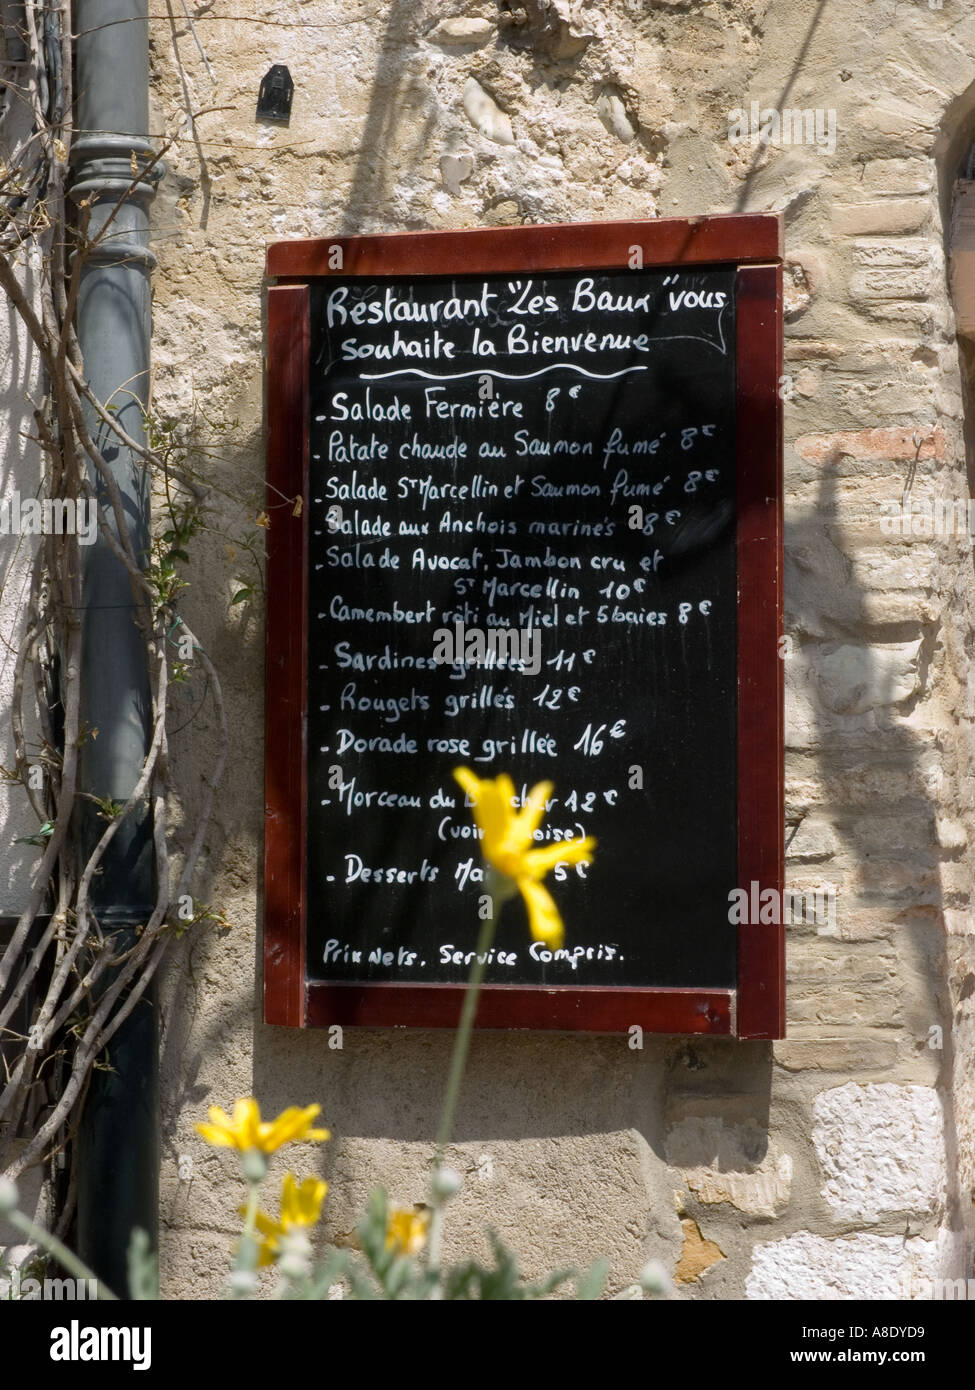 Restaurant "Les Baux" vous
Souhaite la Bienvenue
- Salade Fermière 8€
- Patate chaude au Saumon fumé 8€
- Salade St Marcellin et Saumon fumé 8€
- Salade aux Anchois marinés 8€
- Salade Avocat, Jambon cru et
St Marcellin 10€
- Camembert rôti au Miel et 5 baies 8€
- Sardines grillées 11€
- Rougets grillés 12€
- Dorade rose grillée 16€
- Morceau du 12€
(voir
- Desserts 5€
Prix Nets. Service Compris.
alamy
Image ID: A8DYD9
www.alamy.com